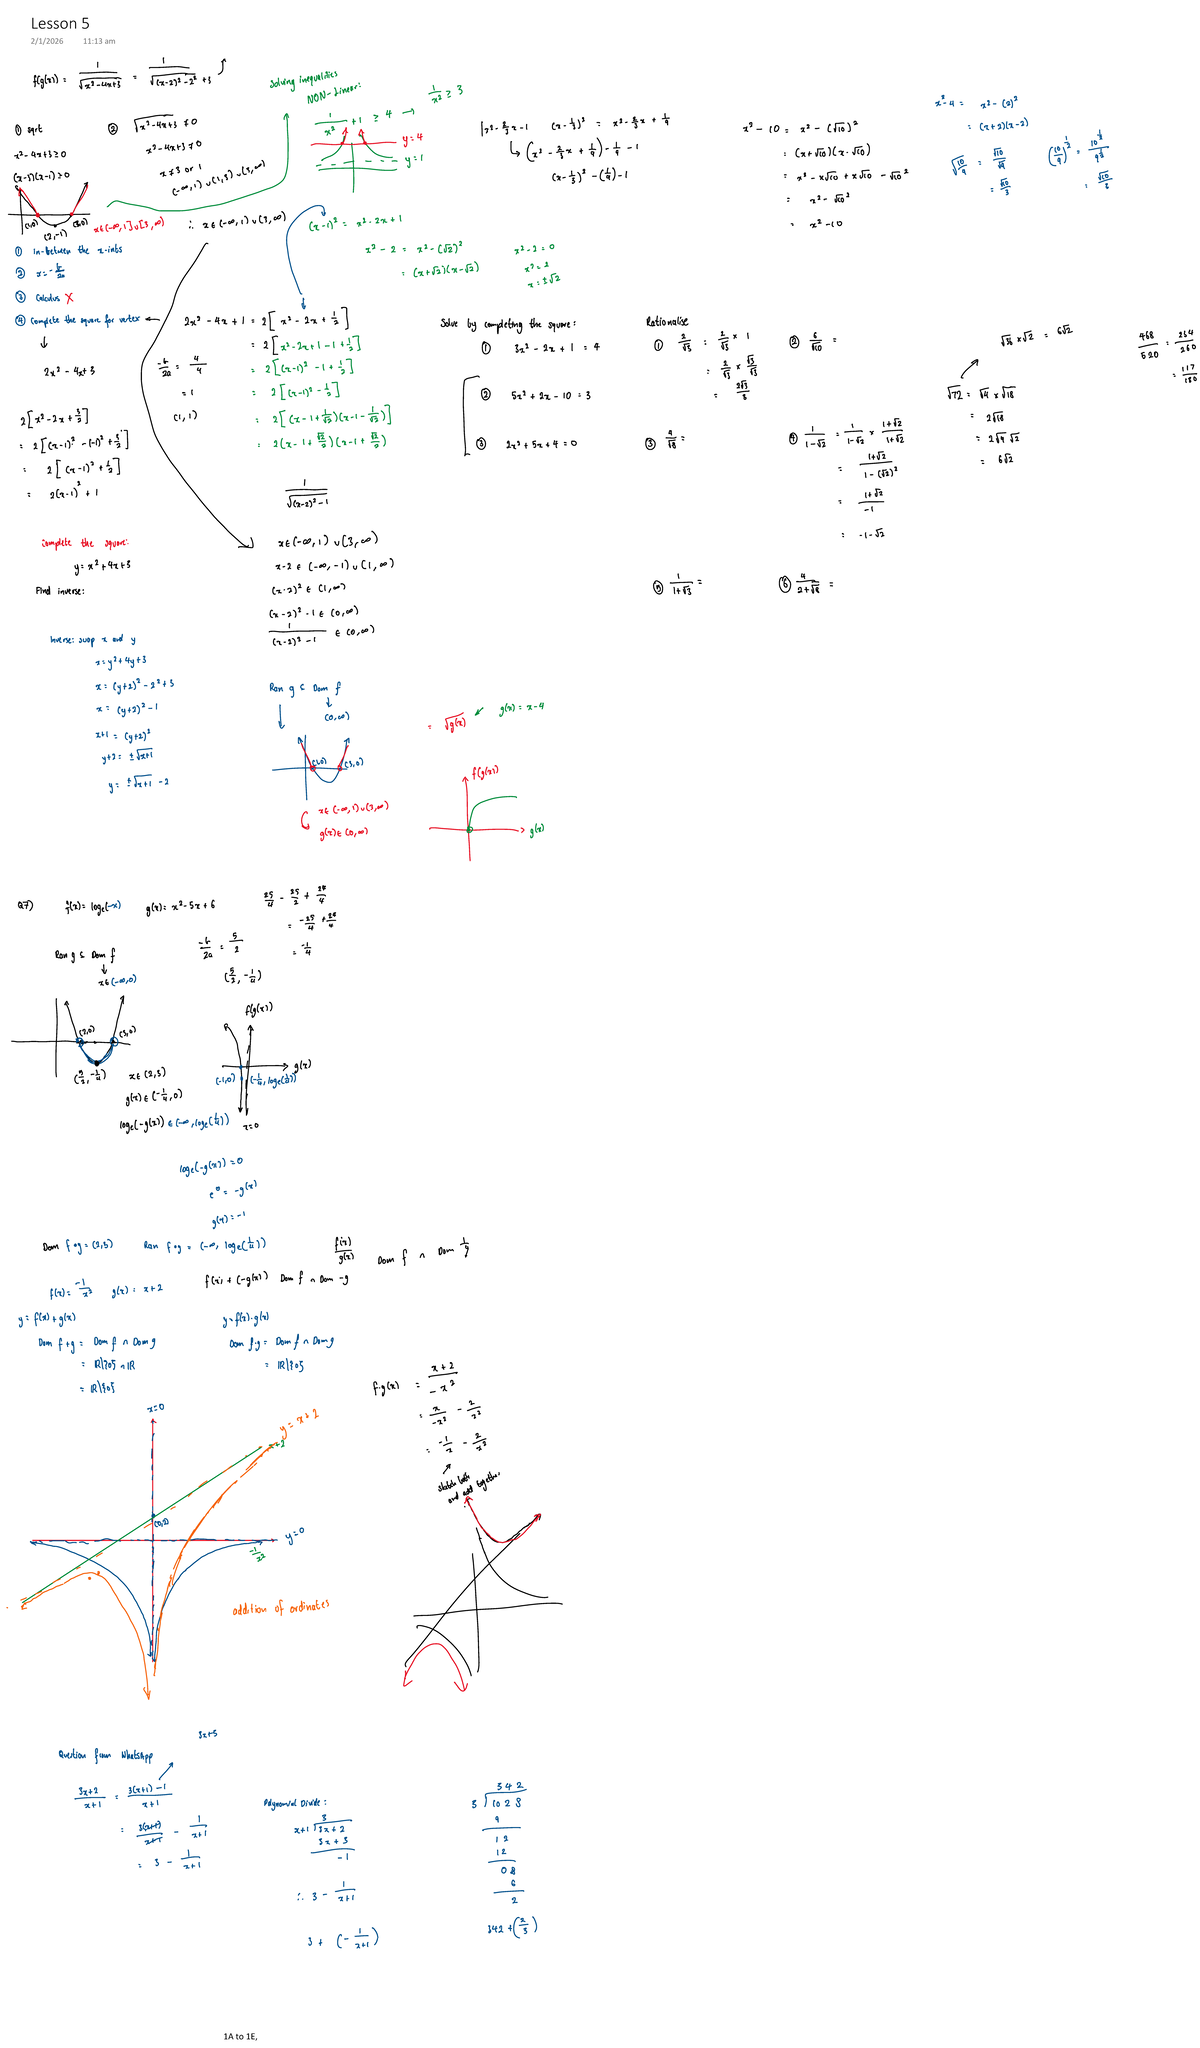 Lesson 5
2/1/2026 11:13 am
f(g(x)) = 1/√(x²-4x+3) = 1/√((x-2)²-2²+3)
① sqrt
x²-4x+3 ≥ 0
(x-3)(x-1) ≥ 0
(1,0) (3,0)
(2,-1)
x∈(-∞,1]∪[3,∞)
② √(x²-4x+3) ≠ 0
x²-4x+3 ≠ 0
x ≠ 3 or 1
(-∞,1)∪(1,3)∪(3,∞)
∴ x∈(-∞,1)∪(3,∞)
① In-between the x-ints
② x = -b/2a
③ Calculus X
④ Complete the square for vertex
2x²-4x+3
2[x²-2x+3/2]
= 2[(x-1)²-(-1)²+3/2]
= 2[(x-1)²+1/2]
= 2(x-1)²+1
Solving inequalities
NON-Linear:
1/x² + 1 ≥ 4 → 1/x² ≥ 3
y=4
y=1
(x-1)² = x²-2x+1
x²-2 = x²-(√2)²
= (x+√2)(x-√2)
x²-2=0
x²=2
x=±√2
2x²-4x+1 = 2[x²-2x+1/2]
= 2[x²-2x+1-1+1/2]
= 2[(x-1)²-1+1/2]
= 2[(x-1)²-1/2]
= 2[(x-1+1/√2)(x-1-1/√2)]
= 2(x-1+√2/2)(x-1+√2/2)
-b/2a = 4/4
= 1
(1,1)
1/√((x-2)²-1)
x∈(-∞,1)∪(3,∞)
x-2 ∈ (-∞,-1)∪(1,∞)
(x-2)² ∈ (1,∞)
(x-2)²-1 ∈ (0,∞)
1/((x-2)²-1) ∈ (0,∞)
x²-2/3x-1 (x-1/3)² = x²-2/3x+1/9
(x²-2/3x+1/9)-1/9-1
(x-1/3)²-(1/9)-1
x²-10 = x²-(√10)²
= (x+√10)(x-√10)
= x²-x√10+x√10-√10²
= x²-√10²
= x²-10
x²-4 = x²-(2)²
= (x+2)(x-2)
√(10/9) = √10/√9
= √10/3
(10/9)^(1/2) = 10^(1/2)/9^(1/2)
= √10/3
Solve by completing the square:
① 3x²-2x+1=4
② 5x²+2x-10=3
③ 2x²+5x+4=0
Rationalise
① 2/√3 = 2/√3 × 1
= 2/√3 × √3/√3
= 2√3/3
② 6/√10 =
③ 4/√8 =
④ 1/(1-√2) = 1/(1-√2) × (1+√2)/(1+√2)
= (1+√2)/(1-(√2)²)
= (1+√2)/-1
= -1-√2
⑤ 1/(1+√3) =
⑥ 4/(2+√8) =
√36×√2 = 6√2
√72 = √4×√18
= 2√18
= 2√9√2
= 6√2
468/520 = 234/260
= 117/130
Complete the square:
y=x²+4x+3
Find inverse:
Inverse: swap x and y
x=y²+4y+3
x=(y+2)²-2²+3
x=(y+2)²-1
x+1=(y+2)²
y+2=±√(x+1)
y=±√(x+1)-2
Ran g ⊆ Dom f
(0,∞)
(1,0) (3,0)
x∈(-∞,1)∪(3,∞)
g(x)∈(0,∞)
= √g(x) g(x)=x-4
f(g(x))
g(x)
Q7) f(x)=logₑ(-x) g(x)=x²-5x+6
25/4 - 25/2 + 24/4
= -25/4 + 24/4
= -1/4
-b/2a = 5/2
(5/2,-1/4)
Ran g ⊆ Dom f
x∈(-∞,0)
(2,0) (3,0)
(5/2,-1/4)
x∈(2,3)
g(x)∈(-1/4,0)
logₑ(-g(x)) ∈(-∞,logₑ(1/4))
f(g(x))
g(x)
(-1,0) (-1/4,logₑ(1/4))
x=0
logₑ(-g(x))=0
e⁰=-g(x)
g(x)=-1
Dom f∘g=(2,3) Ran f∘g=(-∞,logₑ(1/4))
f(x)/g(x) Dom f ∩ Dom 1/g
f(x)=-1/x² g(x)=x+2 f(x)+(-g(x)) Dom f ∩ Dom -g
y=f(x)+g(x)
Dom f+g = Dom f ∩ Dom g
= ℝ\{0}∩ℝ
= ℝ\{0}
y=f(x)·g(x)
Dom f·g = Dom f ∩ Dom g
= ℝ\{0}
f·g(x) = (x+2)/-x²
= x/-x² - 2/x²
= -1/x - 2/x²
Sketch both and add together
x=0
y=x+2
x+2
(0,2)
y=0
-1/x²
addition of ordinates
3x+5
Question from WhatsApp
(3x+2)/(x+1) = (3(x+1)-1)/(x+1)
= 3(x+1)/(x+1) - 1/(x+1)
= 3 - 1/(x+1)
Polynomial Divide:
3
x+1 | 3x+2
3x+3
-1
∴ 3 - 1/(x+1)
3 + (-1/(x+1))
342
3 | 1028
9
12
12
08
6
2
342+(2/3)
1A to 1E,